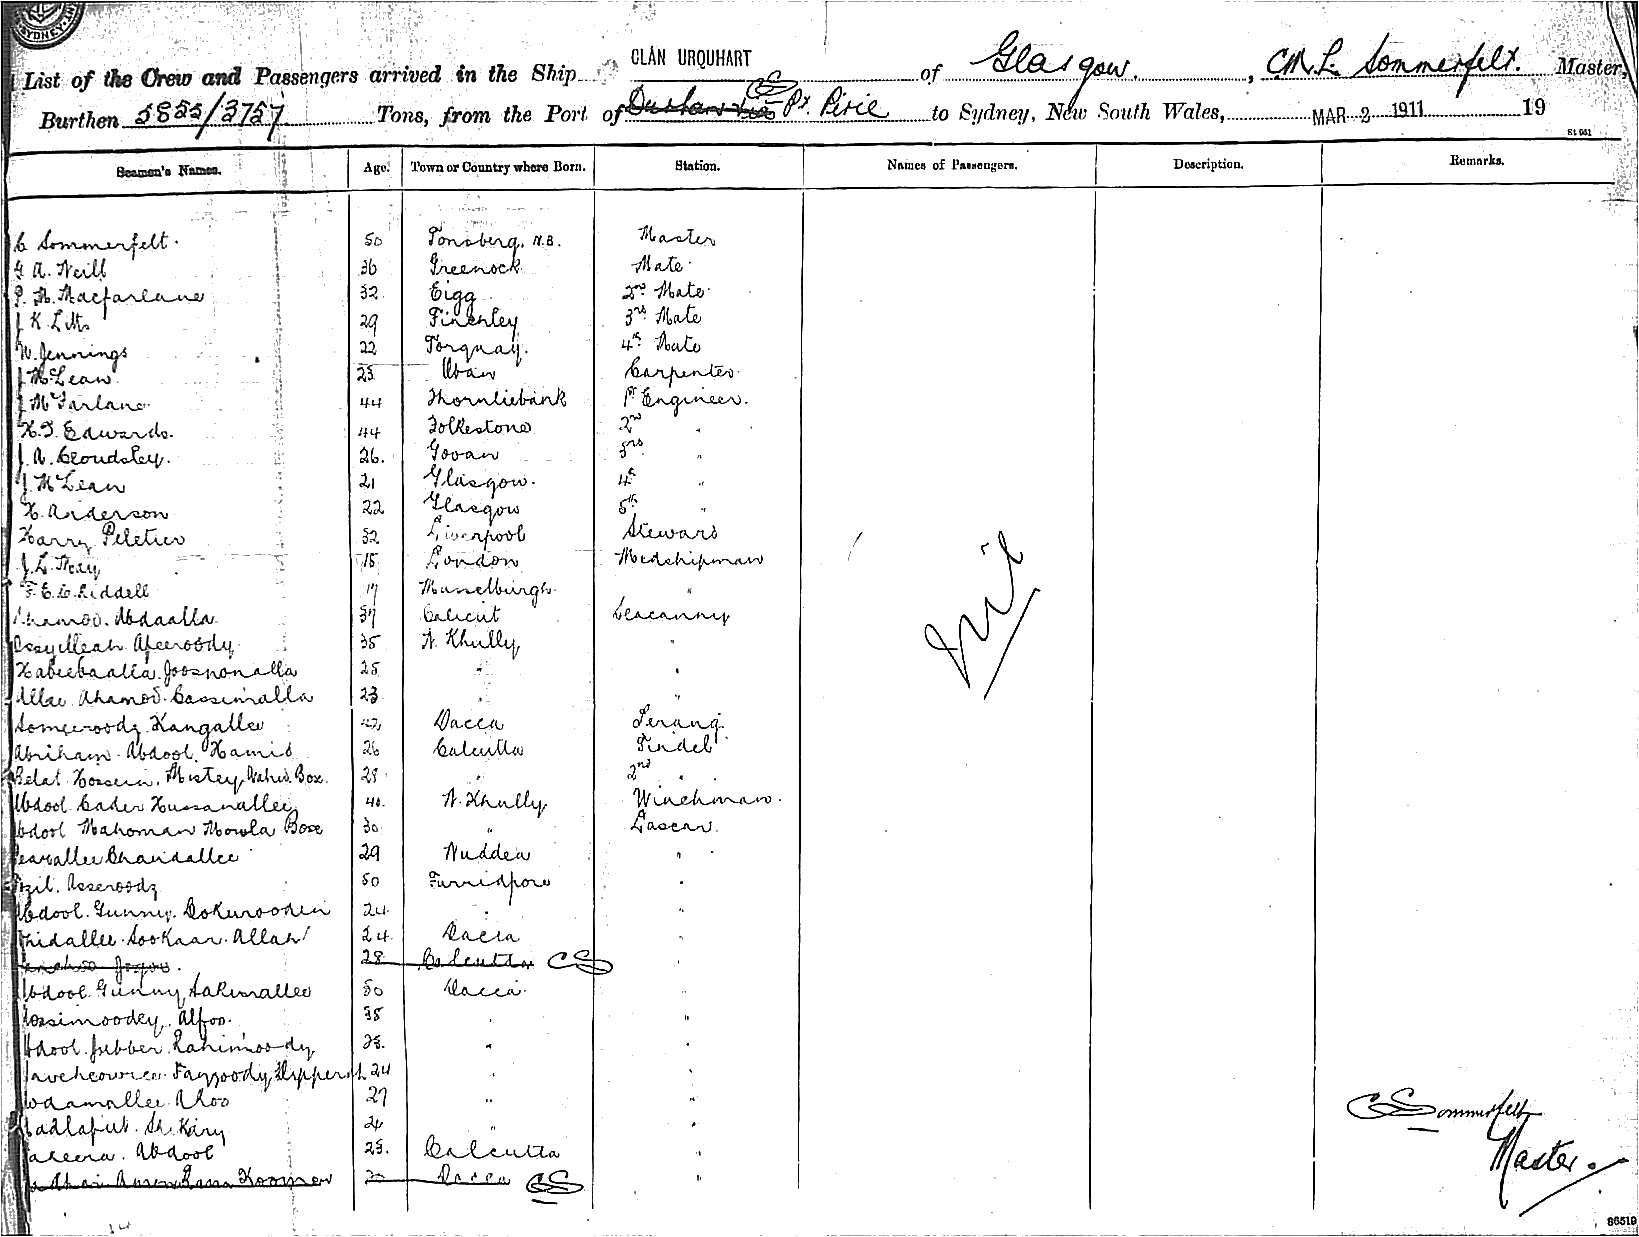 SYDNEY
List of the Crew and Passengers arrived in the Ship CLAN URQUHART of Glasgow, C.M.L. Sommerfelt. Master,
Burthen 5855/3757 Tons, from the Port of Pt. Pirie to Sydney, New South Wales, MAR 2 1911 19
St 661
Seamen's Names. Age. Town or Country where Born. Station. Names of Passengers. Description. Remarks.
C Sommerfelt. 50 Tonsberg. N.B. Master
G A. Neill 36 Greenock Mate
P. M. Macfarlane 32 Eigg 2nd Mate
J K. Litts 29 Finchley 3rd Mate
W. Jennings 22 Torquay. 4th Mate
J McLean 25 Oban Carpenter
J McFarlane 44 Thornliebank 1st Engineer.
H. J. Edwards. 44 Folkestone 2nd "
J. A. Cloudsley. 26. Govan 3rd "
J. McLean 21 Glasgow. 4th "
H. Anderson 22 Glasgow 5th "
Harry Peletier 32 Liverpool Steward
J. L. 18 London Medshipman
F. E. C. Liddell 17 Musselburgh "
Ahamod. Abdaalla. 37 Calicut Seacunny
Ossyulleah. Afeeroody. 35 N. Khully "
Habeebaalla. Joosnonalla 25 " "
Allee Ahamod. Cassimalla 23 " "
Somjeroody Kangallee 42 Dacca Serang.
Abriham. Abdool. Hamid 26 Calcutta Tindel
Belat Hossein. Mistey, Wahid. Box. 28 " 2nd "
Abdool Cader Hussanallee 40. N. Khully Winchman.
Abdool Mahoman Mowla Box 30 " Lascar.
Chandallee 29 Nuddea "
Fozil. Asseroody 50 Furridpore "
Abdool. Gunny. Dokurooden 24 " "
Sookaar. Allah 24 Dacca "
28 Calcutta CS "
Abdool. Gunny, Sakimallee 50 Dacca. "
Kossimoodey, Alfoo. 38 " "
Abdool. Jubber. Rahimoody 25. " "
Fayzoody, 24 " "
Ahoo 27 " "
Sk. Kary 24 " "
Abdool 25. Calcutta "
Koomer Dacca CS "
Nil
CSommerfelt
Master.
86519